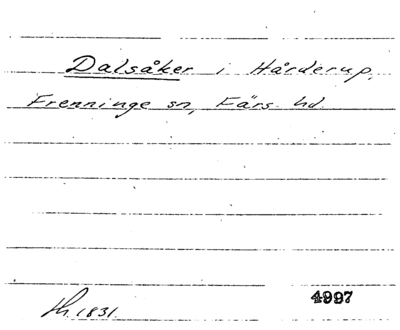 Dalsåker i Hårderup,
Frenninge sn, Färs hd.
4997
1831.